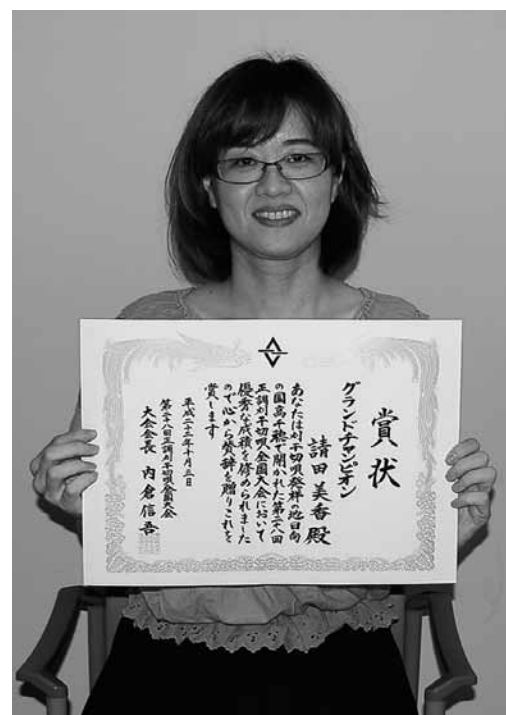 賞状
グランドチャンピオン
請田美香殿
あなたは刈干切唄発祥の地日向
の国高千穂で開かれた第二八回
正調刈干切唄全国大会において
優秀な成績を修められました
ので心から賛辞を贈りこれを
賞します
平成二十二年十月三日
第二十八回正調刈干切唄全国大会
大会会長 内倉信吾